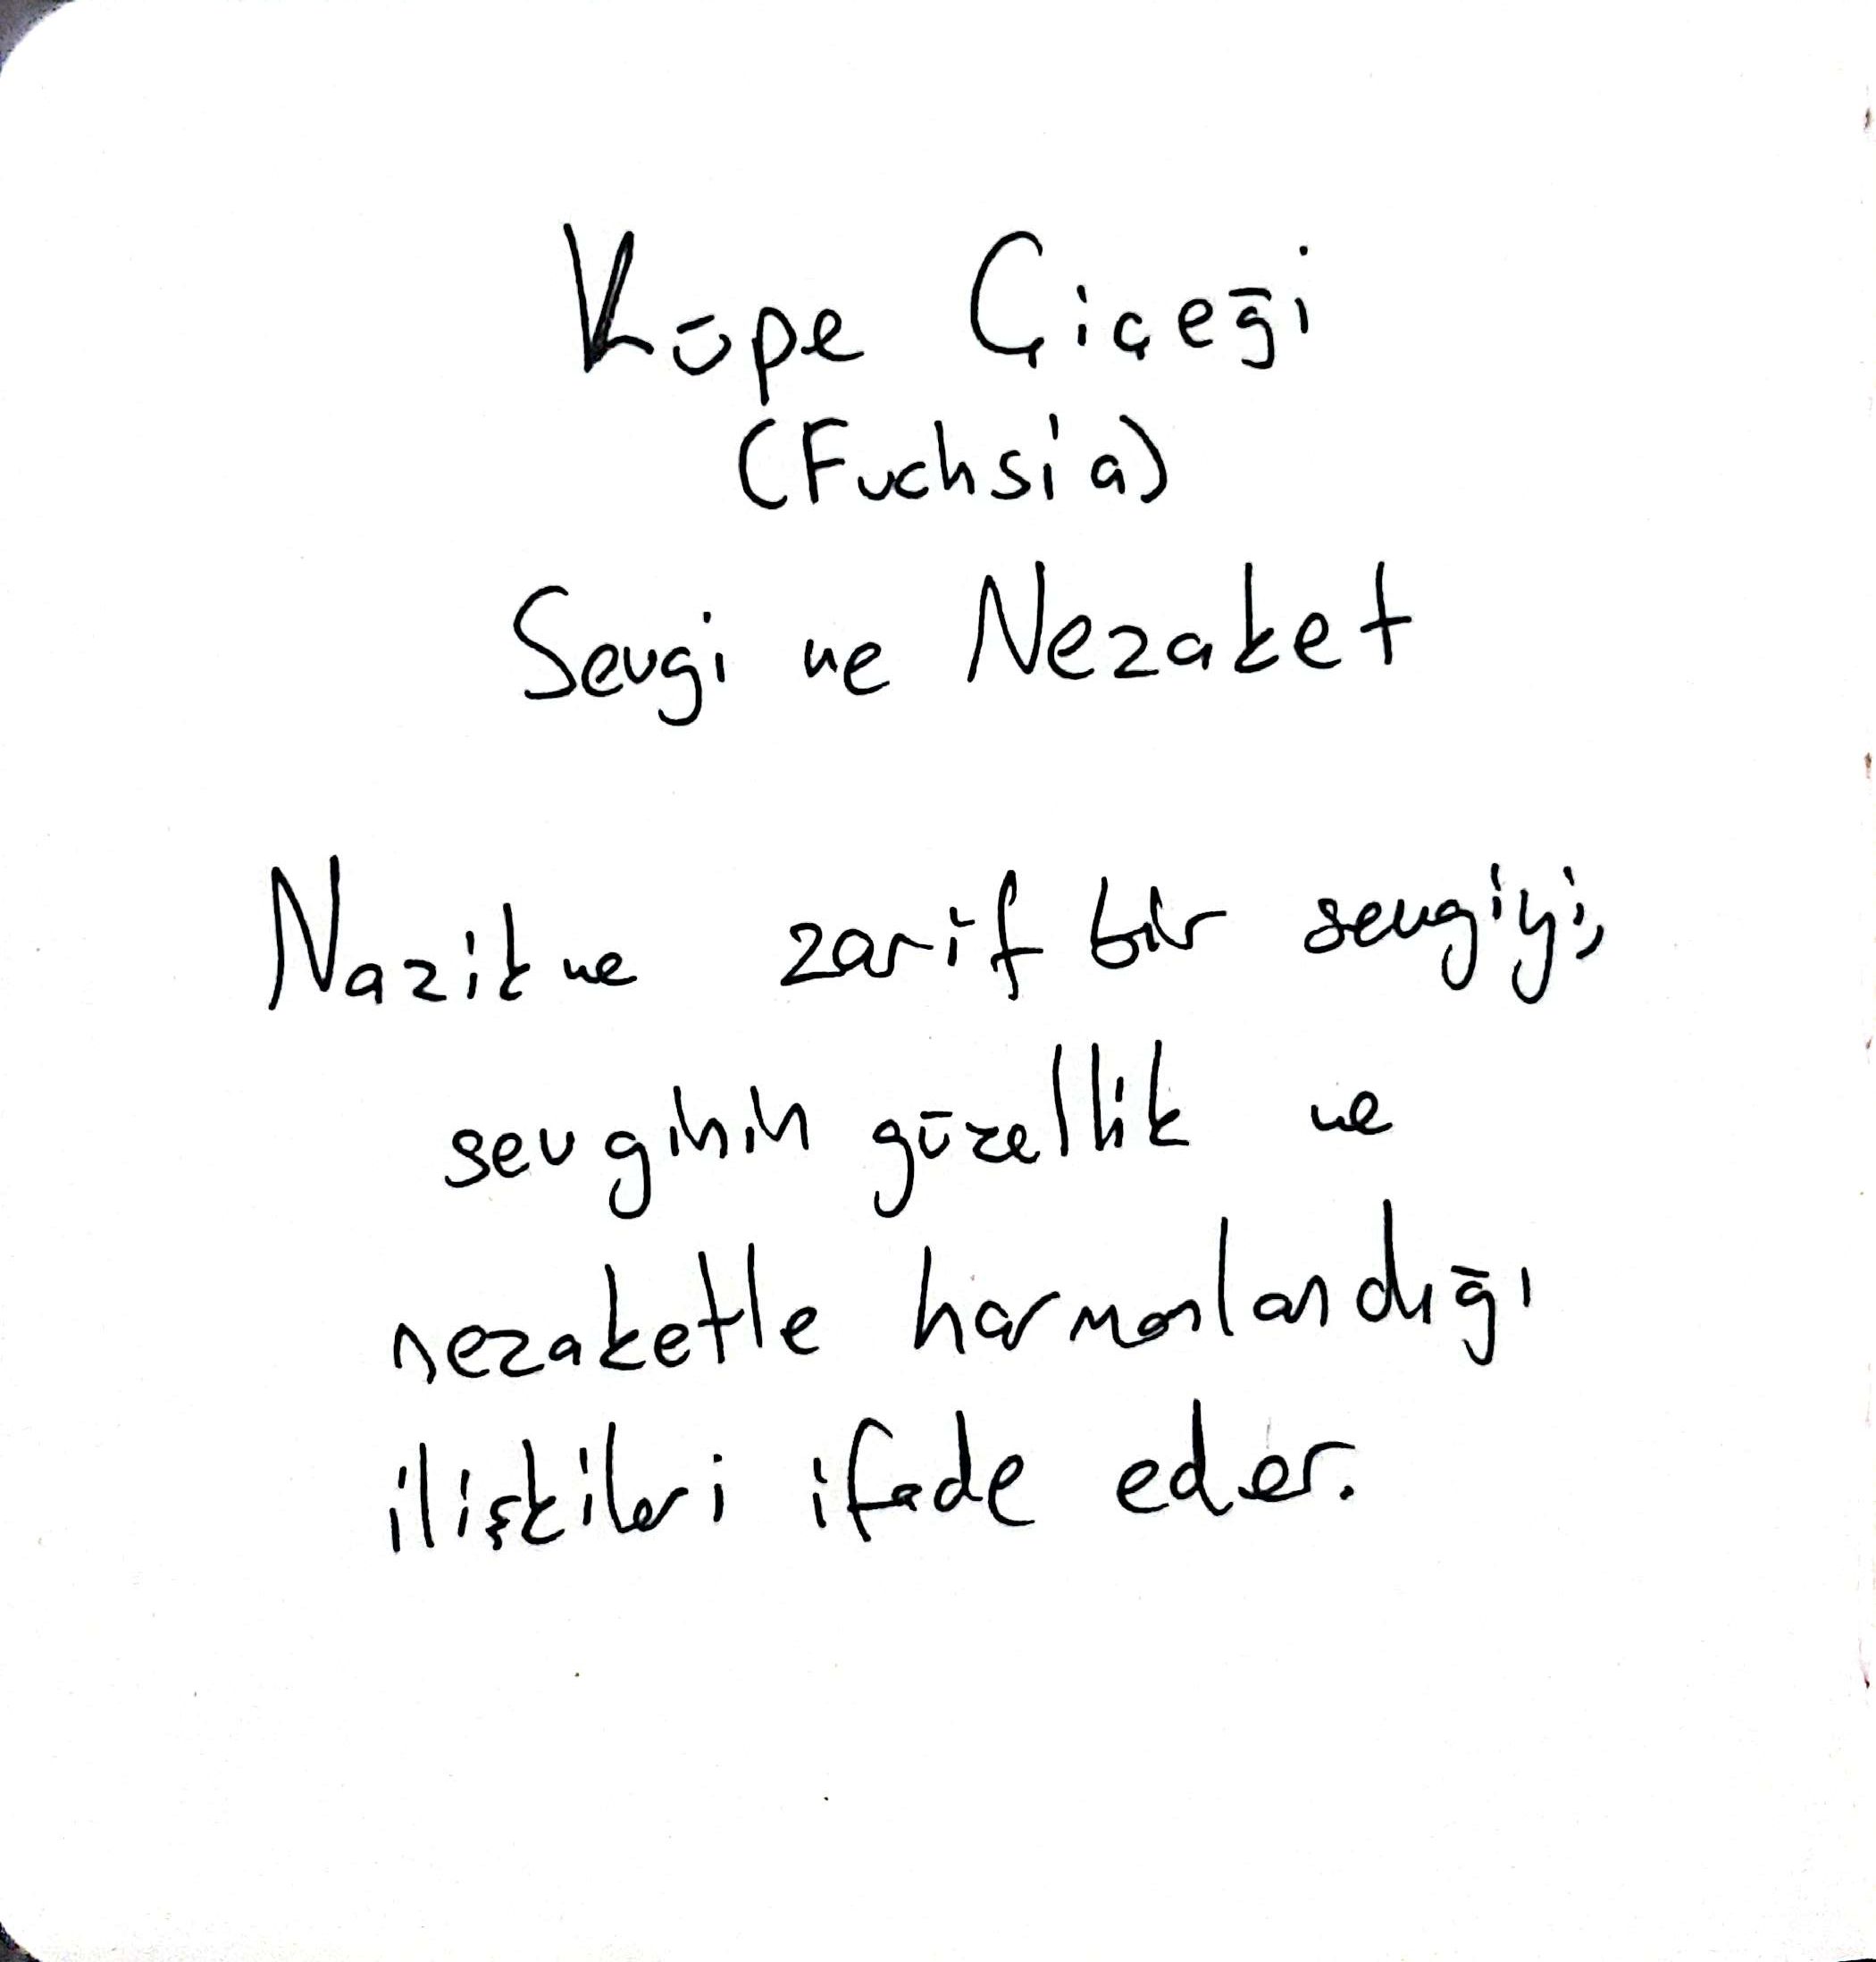 Küpe Çiçeği
(Fuchsia)
Sevgi ve Nezaket
Nazik ve zarif bir sevgiyi,
sevginin güzellik ve
nezaketle harmanlandığı
ilişkileri ifade eder.